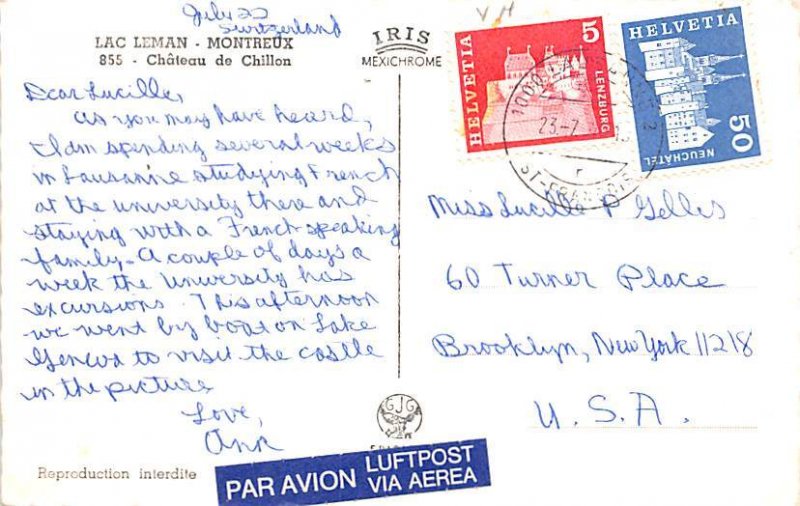 July 22
Switzerland
LAC LEMAN - MONTREUX
855 - Château de Chillon
IRIS
MEXICHROME
Dear Lucille,
As you may have heard,
I am spending several weeks
in Lausanne studying French
at the university there and
staying with a French-speaking
family. A couple of days a
week the University has
excursions. This afternoon
we went by boat on Lake
Geneva to visit the castle
in the picture.
Love,
Ann
Reproduction interdite
GJG
PAR AVION LUFTPOST
VIA AEREA
V H
HELVETIA
5
LENZBURG
HELVETIA
50
NEUCHÂTEL
1000
23.-7
ST-FRANÇOIS
Miss Lucille P Gelles
60 Turner Place
Brooklyn, New York 11218
U.S.A.